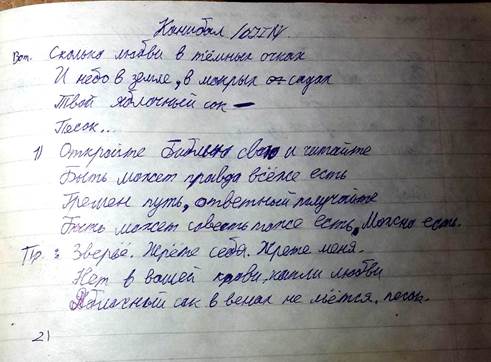 Канибал
Вст. Сколько любви в тёмных очках
И небо в земле, в мокрых садах
Твой яблочный сок –
Песок..
1) Откройте Библию свою и читайте
Быть может правда всёже есть
Времен путь, ответный получайте
Быть может совесть тоже есть, Можно есть.
Пр.: Зверьё. Жрёте себя. Жрете меня.
Нет в вашей крови, капли любви
Яблочный сок в венах не льётся. песок.
2)